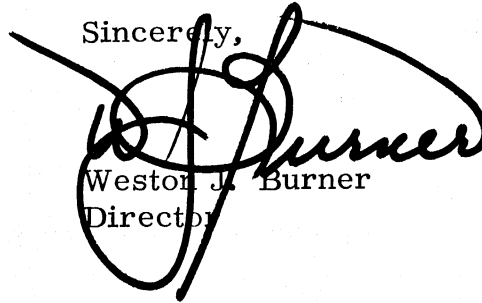 Sincerely,
W J Burner
Weston J. Burner
Director